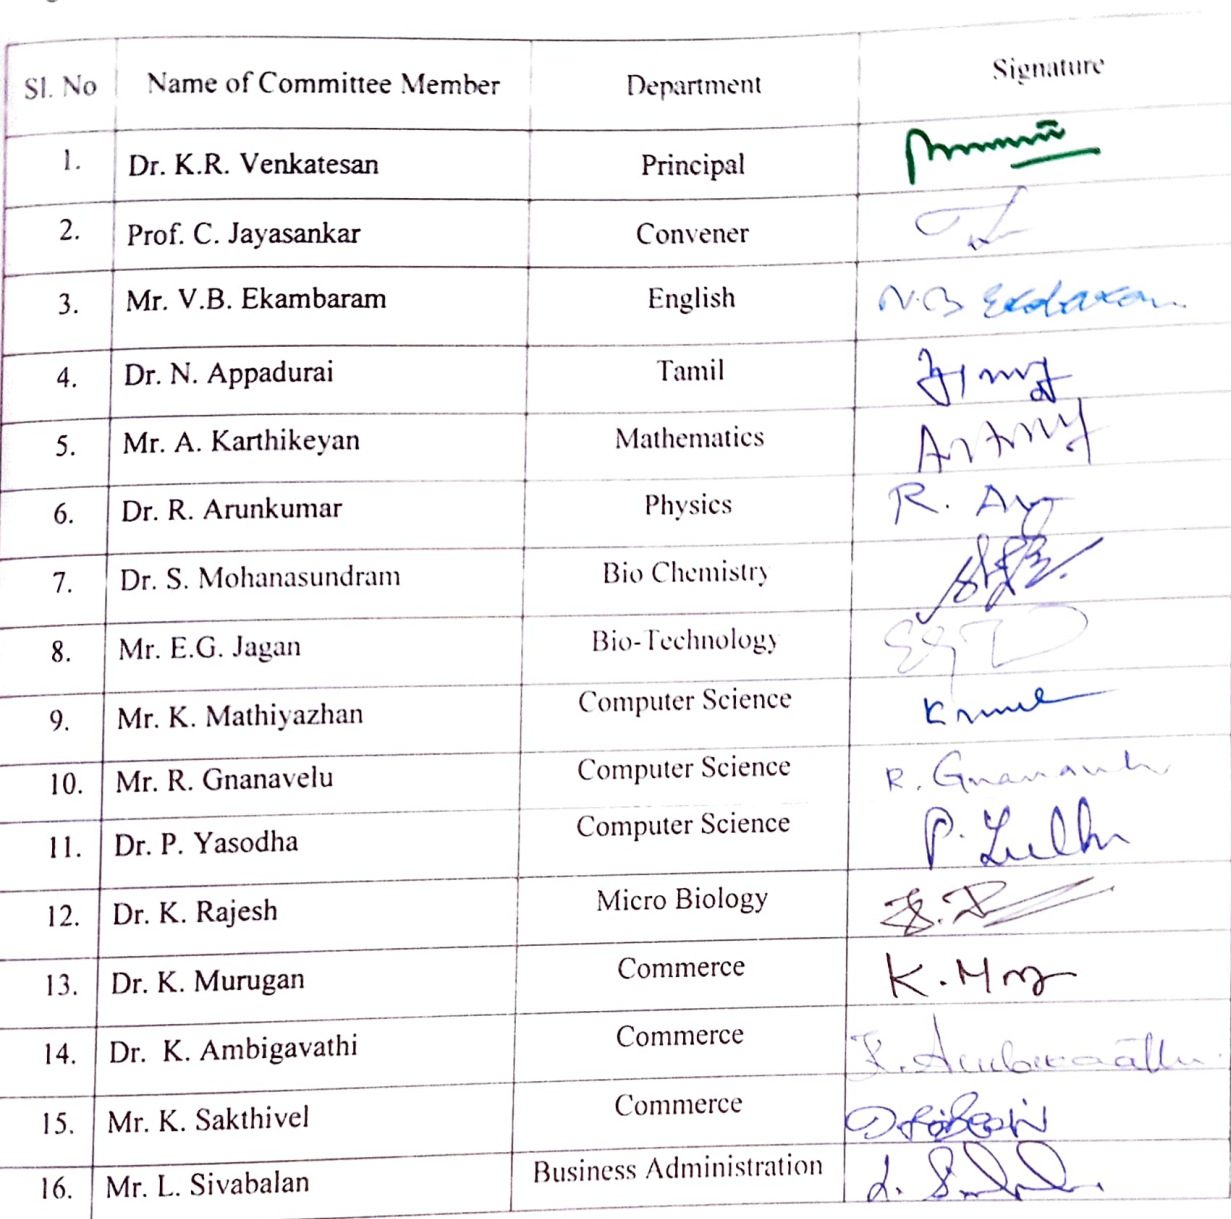 Sl. No Name of Committee Member Department Signature
1. Dr. K.R. Venkatesan Principal
2. Prof. C. Jayasankar Convener
3. Mr. V.B. Ekambaram English
4. Dr. N. Appadurai Tamil
5. Mr. A. Karthikeyan Mathematics
6. Dr. R. Arunkumar Physics R.
7. Dr. S. Mohanasundram Bio Chemistry
8. Mr. E.G. Jagan Bio-Technology
9. Mr. K. Mathiyazhan Computer Science
10. Mr. R. Gnanavelu Computer Science R.
11. Dr. P. Yasodha Computer Science P.
12. Dr. K. Rajesh Micro Biology
13. Dr. K. Murugan Commerce K.
14. Dr. K. Ambigavathi Commerce
15. Mr. K. Sakthivel Commerce
16. Mr. L. Sivabalan Business Administration L.